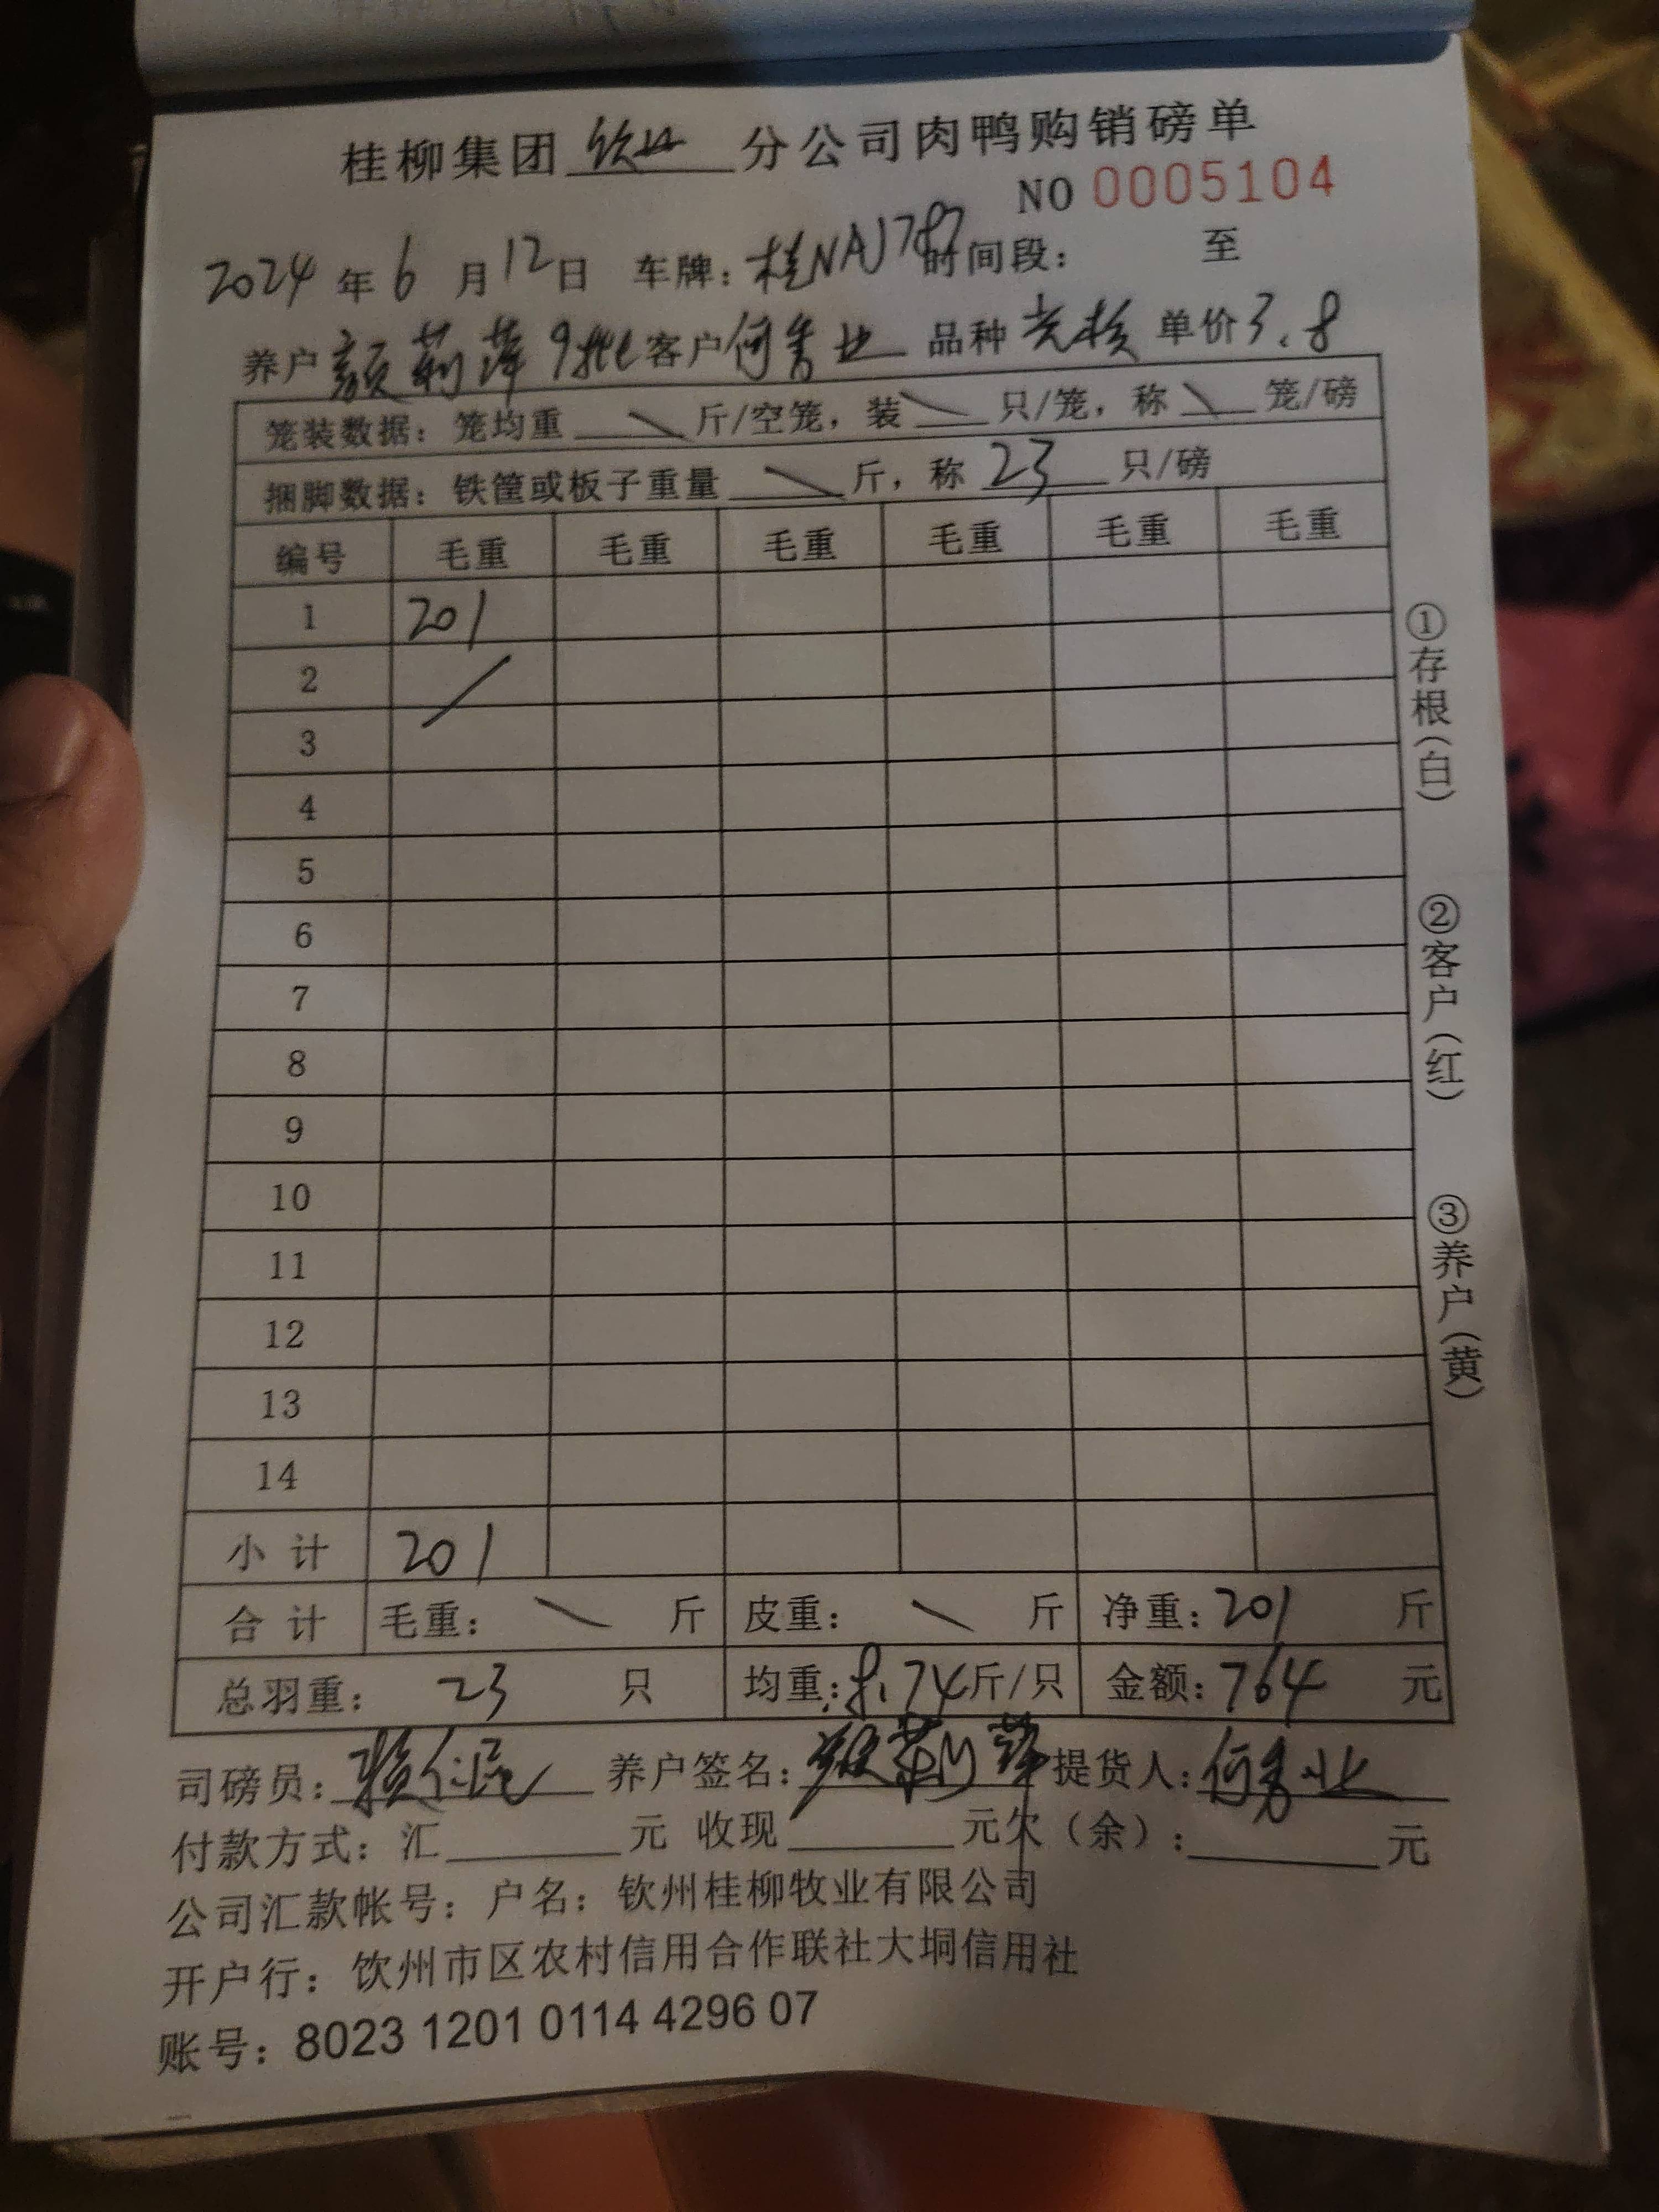 桂柳集团钦州分公司肉鸭购销磅单
NO 0005104
2024年6月12日 车牌：桂NAJ787 时间段： 至
养户 颜莉萍 9批 客户 何秀业 品种 单价3.8
笼装数据：笼均重 \ 斤/空笼，装 \ 只/笼，称 \ 笼/磅
捆脚数据：铁筐或板子重量 \ 斤，称 23 只/磅
编号 毛重 毛重 毛重 毛重 毛重 毛重
1 201
2 /
3
4
5
6
7
8
9
10
11
12
13
14
小计 201
合计 毛重： \ 斤 皮重： \ 斤 净重：201 斤
总羽重： 23 只 均重：8.74斤/只 金额：764 元
司磅员： 养户签名：颜莉萍 提货人：何秀业
付款方式：汇 元 收现 元欠（余）： 元
公司汇款帐号：户名：钦州桂柳牧业有限公司
开户行：钦州市区农村信用合作联社大垌信用社
账号：8023 1201 0114 4296 07
①存根（白）
②客户（红）
③养户（黄）